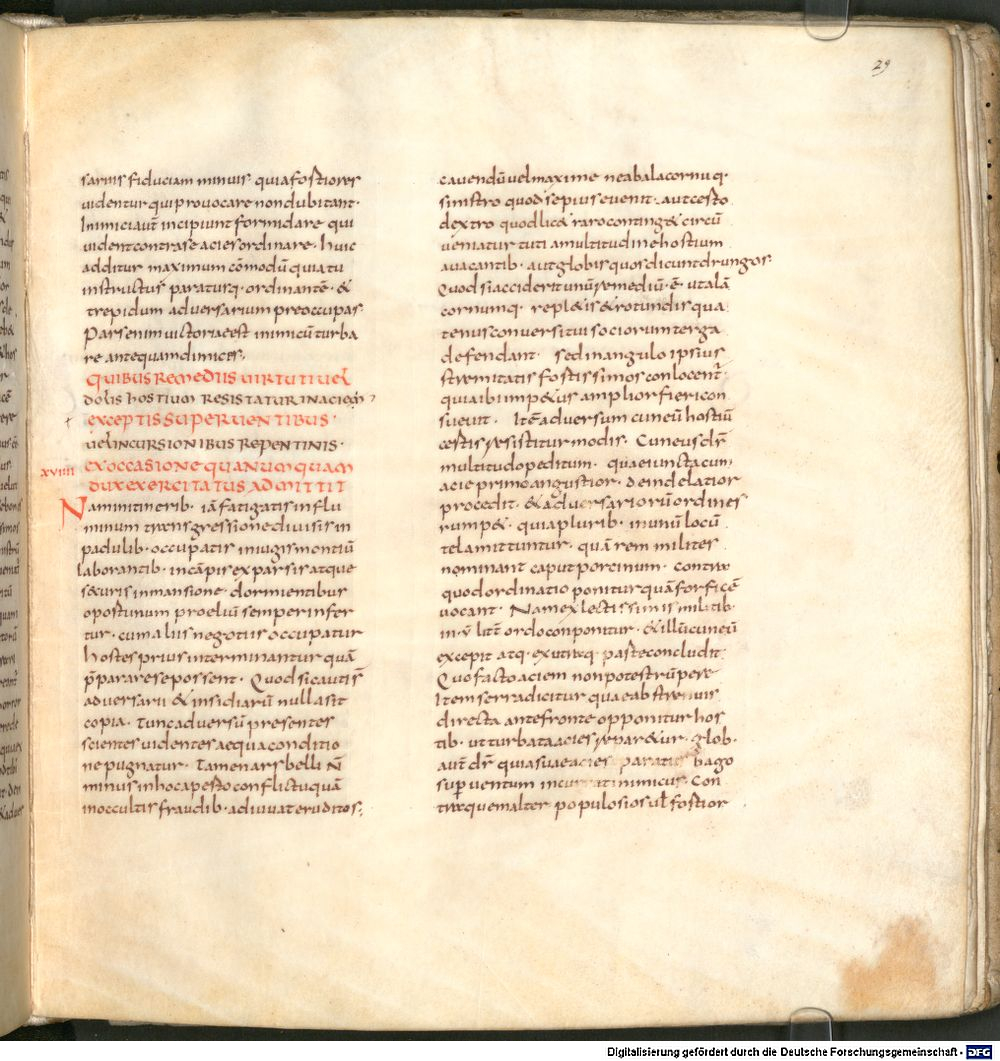 29
sariis fiduciam minuis· quia fortiores
videntur qui provocare non dubitant·
Inimici aut̄ incipiunt formidare qui
vident contra se acies ordinare· huic
additur maximum cōmodū quia tu
instructus paratusq· ordinantē· &
trepidum adversarium preoccupas
Pars enim victoriae est inimicū turba
re antequam dimices;
QUIBUS REMEDIIS VIRTUTI VEL
DOLIS HOSTIUM RESISTATUR IN ACIEM
EXCEPTIS SUPERVENTIBUS·
VEL INCURSIONIBUS REPENTINIS·
XVIIII EX OCCASIONE QUA NUMQUAM
DUX EXERCITATUS ADMITTIT
Nam in itinerib· iā fatigatis in flu
minum transgressione divisis in
padulib· occupatis in iugis montiū
laborantib· in cāpis ex parsis atque
securis in mansione· dormientibus
oportunum proeliū semper infer
tur· cum aliis negotiis occupatur
hostes prius interminantur quā
p̄parare se possent· Quod si cautis
adversarii & insidiarū nulla sit
copia· tunc adversū presentes
scientes videntes aequa conditio
ne pugnatur· Tamen ars belli n̄
minus in hoc aperto conflictu quā
in occultis fraudib· adiuvat eruditos;
cavendū vel maxime ne ab ala cornuq·
sinistro quod sepius evenit· aut certo
dextro quod lic& raro conting& circū
veniatur tuti a multitudine hostium
a vacantib· aut globis quos dicunt drungos·
Quod si acciderit unū remediū·ē· ut alā
cornumq· repl&is & rotundis qua
tenus conversi tui sociorum terga
defendant· sed in angulo ipsius
stremitatis fortissimos conlocent̄·
quia ibi imp&us amplior fieri con
suevit· Itē adversum cuneū hostiū
certis resistitur modis· Cuneus dr̄
multitudo peditum· quae iuncta cum
acie primo angustior· deinde latior
procedit· & adversariorū ordines
rump&· quia plurib· in unū locū
tela mittuntur· quā rem milites
nominant caput porcinum· contra
quod ordinatio ponitur quā forficē
vocant· Nam ex lectissimis militib·
in·v̄· litt̄ ordo conponitur· & illū cuneū
excepit atq· ex utraq· parte concludit·
Quo facto aciem non potest rūpere
Item serra dicitur quae ab strenuis
directa ante fronte opponitur hos
tib· ut turbata acies repar&ur· glob·
aut̄ dr̄ qui a sua acies paratus vago
sup̄ventum incursat inimicus· Con
tra quem alter populosios ul̄ fortior
Digitalisierung gefördert durch die Deutsche Forschungsgemeinschaft - DFG